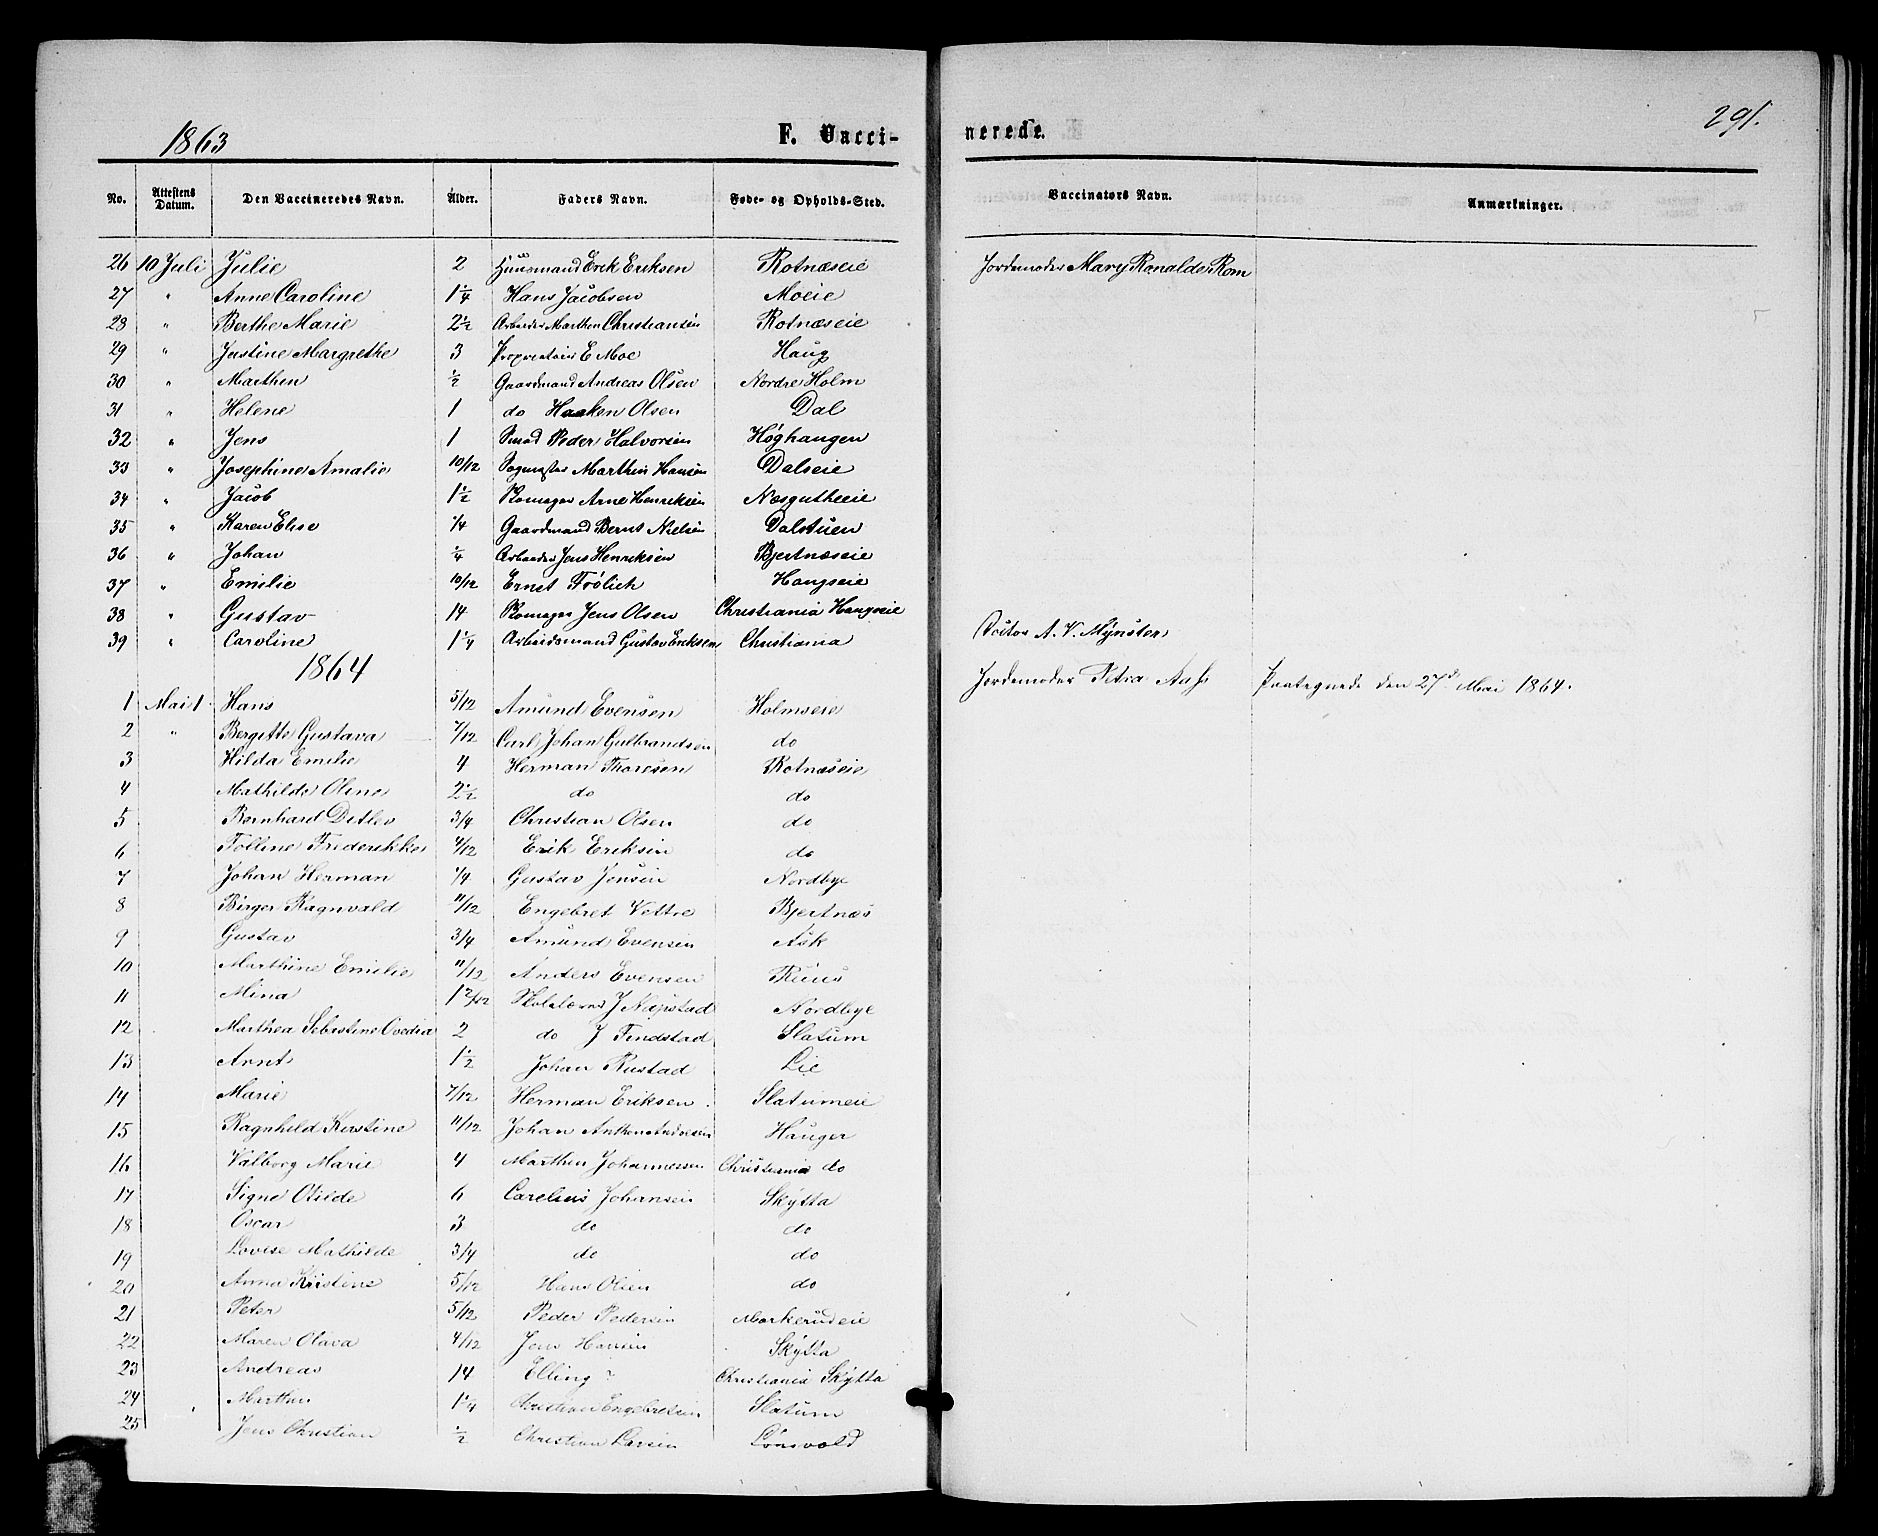 1863 F. Vacci- nerede. 291.
No. Attestens Datum. Den Vaccineredes Navn. Alder. Faders Navn. Føde- og Opholds-Sted. Vaccinators Navn. Anmærkninger.
26 10 Juli Julie 2 Huusmand Erik Eriksen Rotnæseie Jordemoder Mary Ronalde Rom
27 " Anne Caroline 1 1/4 Hans Jacobsen Moeie
28 " Berthe Marie 2 1/2 Arbeider Marthen Christiansen Rotnæseie
29 " Justine Margrethe 3 Proprietair E Moe Haug
30 " Marthen 1/2 Gaardmand Andreas Olsen Nordre Holm
31 " Helene 1 do Haaken Olsen Dal
32 " Jens 1 Smed Peder Halvorsen Høghaugen
33 " Josephine Amalie 10/12 Sagmester Marthin Hansen Dalseie
34 " Jacob 1 1/2 Skomager Arne Henriksen Næsgutheeie
35 " Karen Elise 1/4 Gaardmand Bernt Nielsen Dalstuen
36 " Johan 1/4 Arbeider Jens Henriksen Bjertnæseie
37 " Emilie 10/12 Ernst Frølich Haugseie
38 " Gustav 14 Skomager Jens Olsen Christiania Haugseie
39 " Caroline 1 1/4 Arbeidsmand Gustav Eriksen Christiania Doctor A. V. Mynster
1864
1 Mai 1 Hans 5/12 Amund Evensen Holmseie Jordemoder Petra Aass Paategnede den 27d Mai 1864.
2 " Bergitte Gustava 7/12 Carl Johan Gulbrandsen do
3 Hilda Emilie 4 Herman Thoresen Rotnæseie
4 Mathilde Oline 2 1/2 do do
5 Bernhard Ditlev 3/4 Christian Olsen do
6 Tolline Frederikke 4/12 Erik Eriksen do
7 Johan Herman 1/4 Gustav Jensen Nordbye
8 Birger Ragnvald 11/12 Engebret Vettre Bjertnæs
9 Gustav 3/4 Amund Evensen Ask
10 Marthine Emilie 11/12 Anders Evensen Ruus
11 Mina 1 2/12 Skolelærer J Næpstad Nordbye
12 Marthea Sebistine Ovedia 2 do J Findstad Slatum
13 Arnt 1 1/2 Johan Rustad Lie
14 Marie 7/12 Herman Eriksen Slatumeie
15 Ragnhild Kirstine 11/12 Johan Anthon Andresen Hauger
16 Valborg Marie 4 Marthin Johannessen Christiania do
17 Signe Otilde 6 Carelius Johansen Skytta
18 Oscar 3 do do
19 Lovise Mathilde 3/4 do do
20 Anna Kristine 5/12 Hans Olsen do
21 Peter 5/12 Peder Pedersen Markerudeie
22 Maren Olava 4/12 Jens Hansen Skytta
23 Andreas 14 Elling ? Christiania Skytta
24 Marthin 1 1/4 Christian Engebretsen Slatum
25 Jens Christian 1/2 Christian Larsen Lønsvold